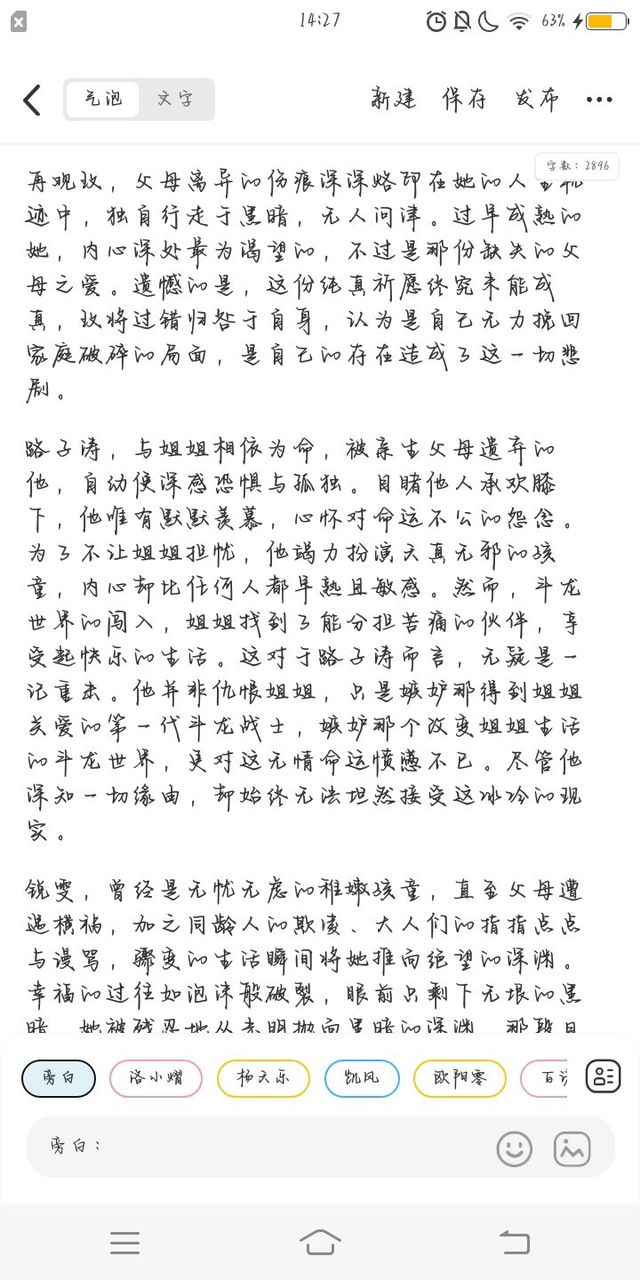 14:27
63%
气泡
文字
新建
保存
发布
字数：2896
再观玫，父母离异的伤痕深深烙印在她的人生轨
迹中，独自行走于黑暗，无人问津。过早成熟的
她，内心深处最为渴望的，不过是那份缺失的父
母之爱。遗憾的是，这份纯真祈愿终究未能成
真，玫将过错归咎于自身，认为是自己无力挽回
家庭破碎的局面，是自己的存在造成了这一切悲
剧。
路子涛，与姐姐相依为命，被亲生父母遗弃的
他，自幼便深感恐惧与孤独。目睹他人承欢膝
下，他唯有默默羡慕，心怀对命运不公的怨念。
为了不让姐姐担忧，他竭力扮演天真无邪的孩
童，内心却比任何人都早熟且敏感。然而，斗龙
世界的闯入，姐姐找到了能分担苦痛的伙伴，享
受起快乐的生活。这对于路子涛而言，无疑是一
记重击。他并非仇恨姐姐，只是嫉妒那得到姐姐
关爱的第一代斗龙战士，嫉妒那个改变姐姐生活
的斗龙世界，更对这无情命运愤懑不已。尽管他
深知一切缘由，却始终无法坦然接受这冰冷的现
实。
锐雯，曾经是无忧无虑的稚嫩孩童，直至父母遭
遇横祸，加之同龄人的欺凌、大人们的指指点点
与谩骂，骤变的生活瞬间将她推向绝望的深渊。
幸福的过往如泡沫般破裂，眼前只剩下无垠的黑
暗，她被残忍地从光明抛向黑暗的深渊，那段日
旁白
洛小熠
杨天乐
凯风
欧阳零
百诺
旁白：